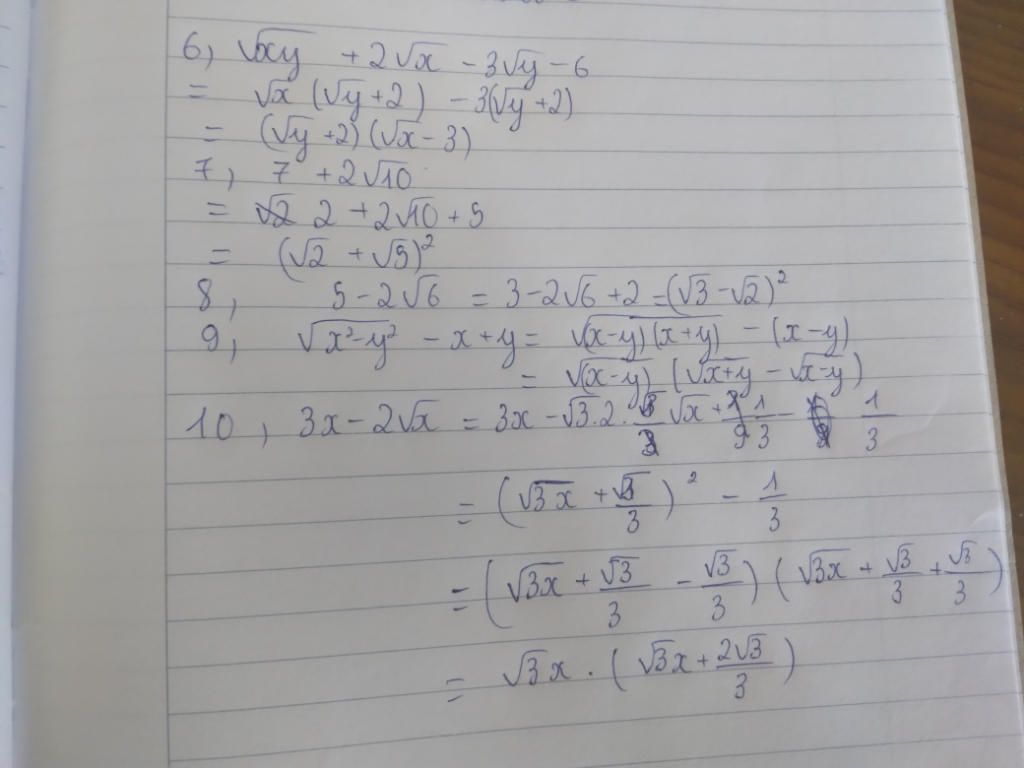 6, √xy + 2√x - 3√y - 6
= √x (√y + 2) - 3(√y + 2)
= (√y + 2)(√x - 3)
7, 7 + 2√10
= 2 + 2√10 + 5
= (√2 + √5)²
8, 5 - 2√6 = 3 - 2√6 + 2 = (√3 - √2)²
9, √x² - y² - x + y = √(x-y)(x+y) - (x - y)
= √(x-y) (√x+y - √x-y)
10, 3x - 2√x = 3x - √3.2.√3/3 √x + 1/3 - 1/3
= (√3x + √3/3)² - 1/3
= (√3x + √3/3 - √3/3) (√3x + √3/3 + √3/3)
= √3x . (√3x + 2√3/3)